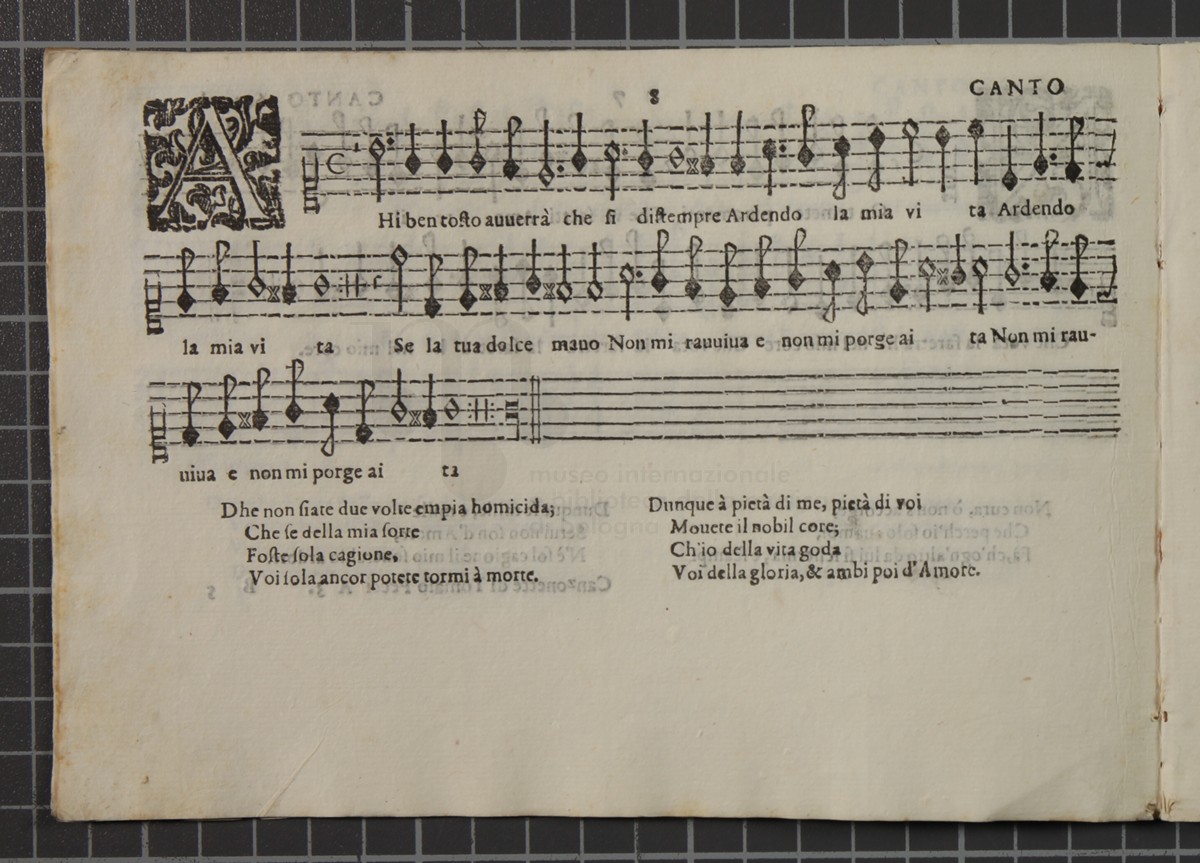 8
CANTO
AHi ben tosto auuerrà che si distempre Ardendo la mia vi ta Ardendo
la mia vi ta Se la tua dolce mano Non mi rauuiua e non mi porge ai ta Non mi rau-
uiua e non mi porge ai ta
museo internazionale
Dhe non siate due volte empia homicida;
Che se della mia sorte
Foste sola cagione,
Voi sola ancor potete tormi à morte.
Dunque à pietà di me, pietà di voi
Mouete il nobil core;
Ch'io della vita goda
Voi della gloria, & ambi poi d'Amore.